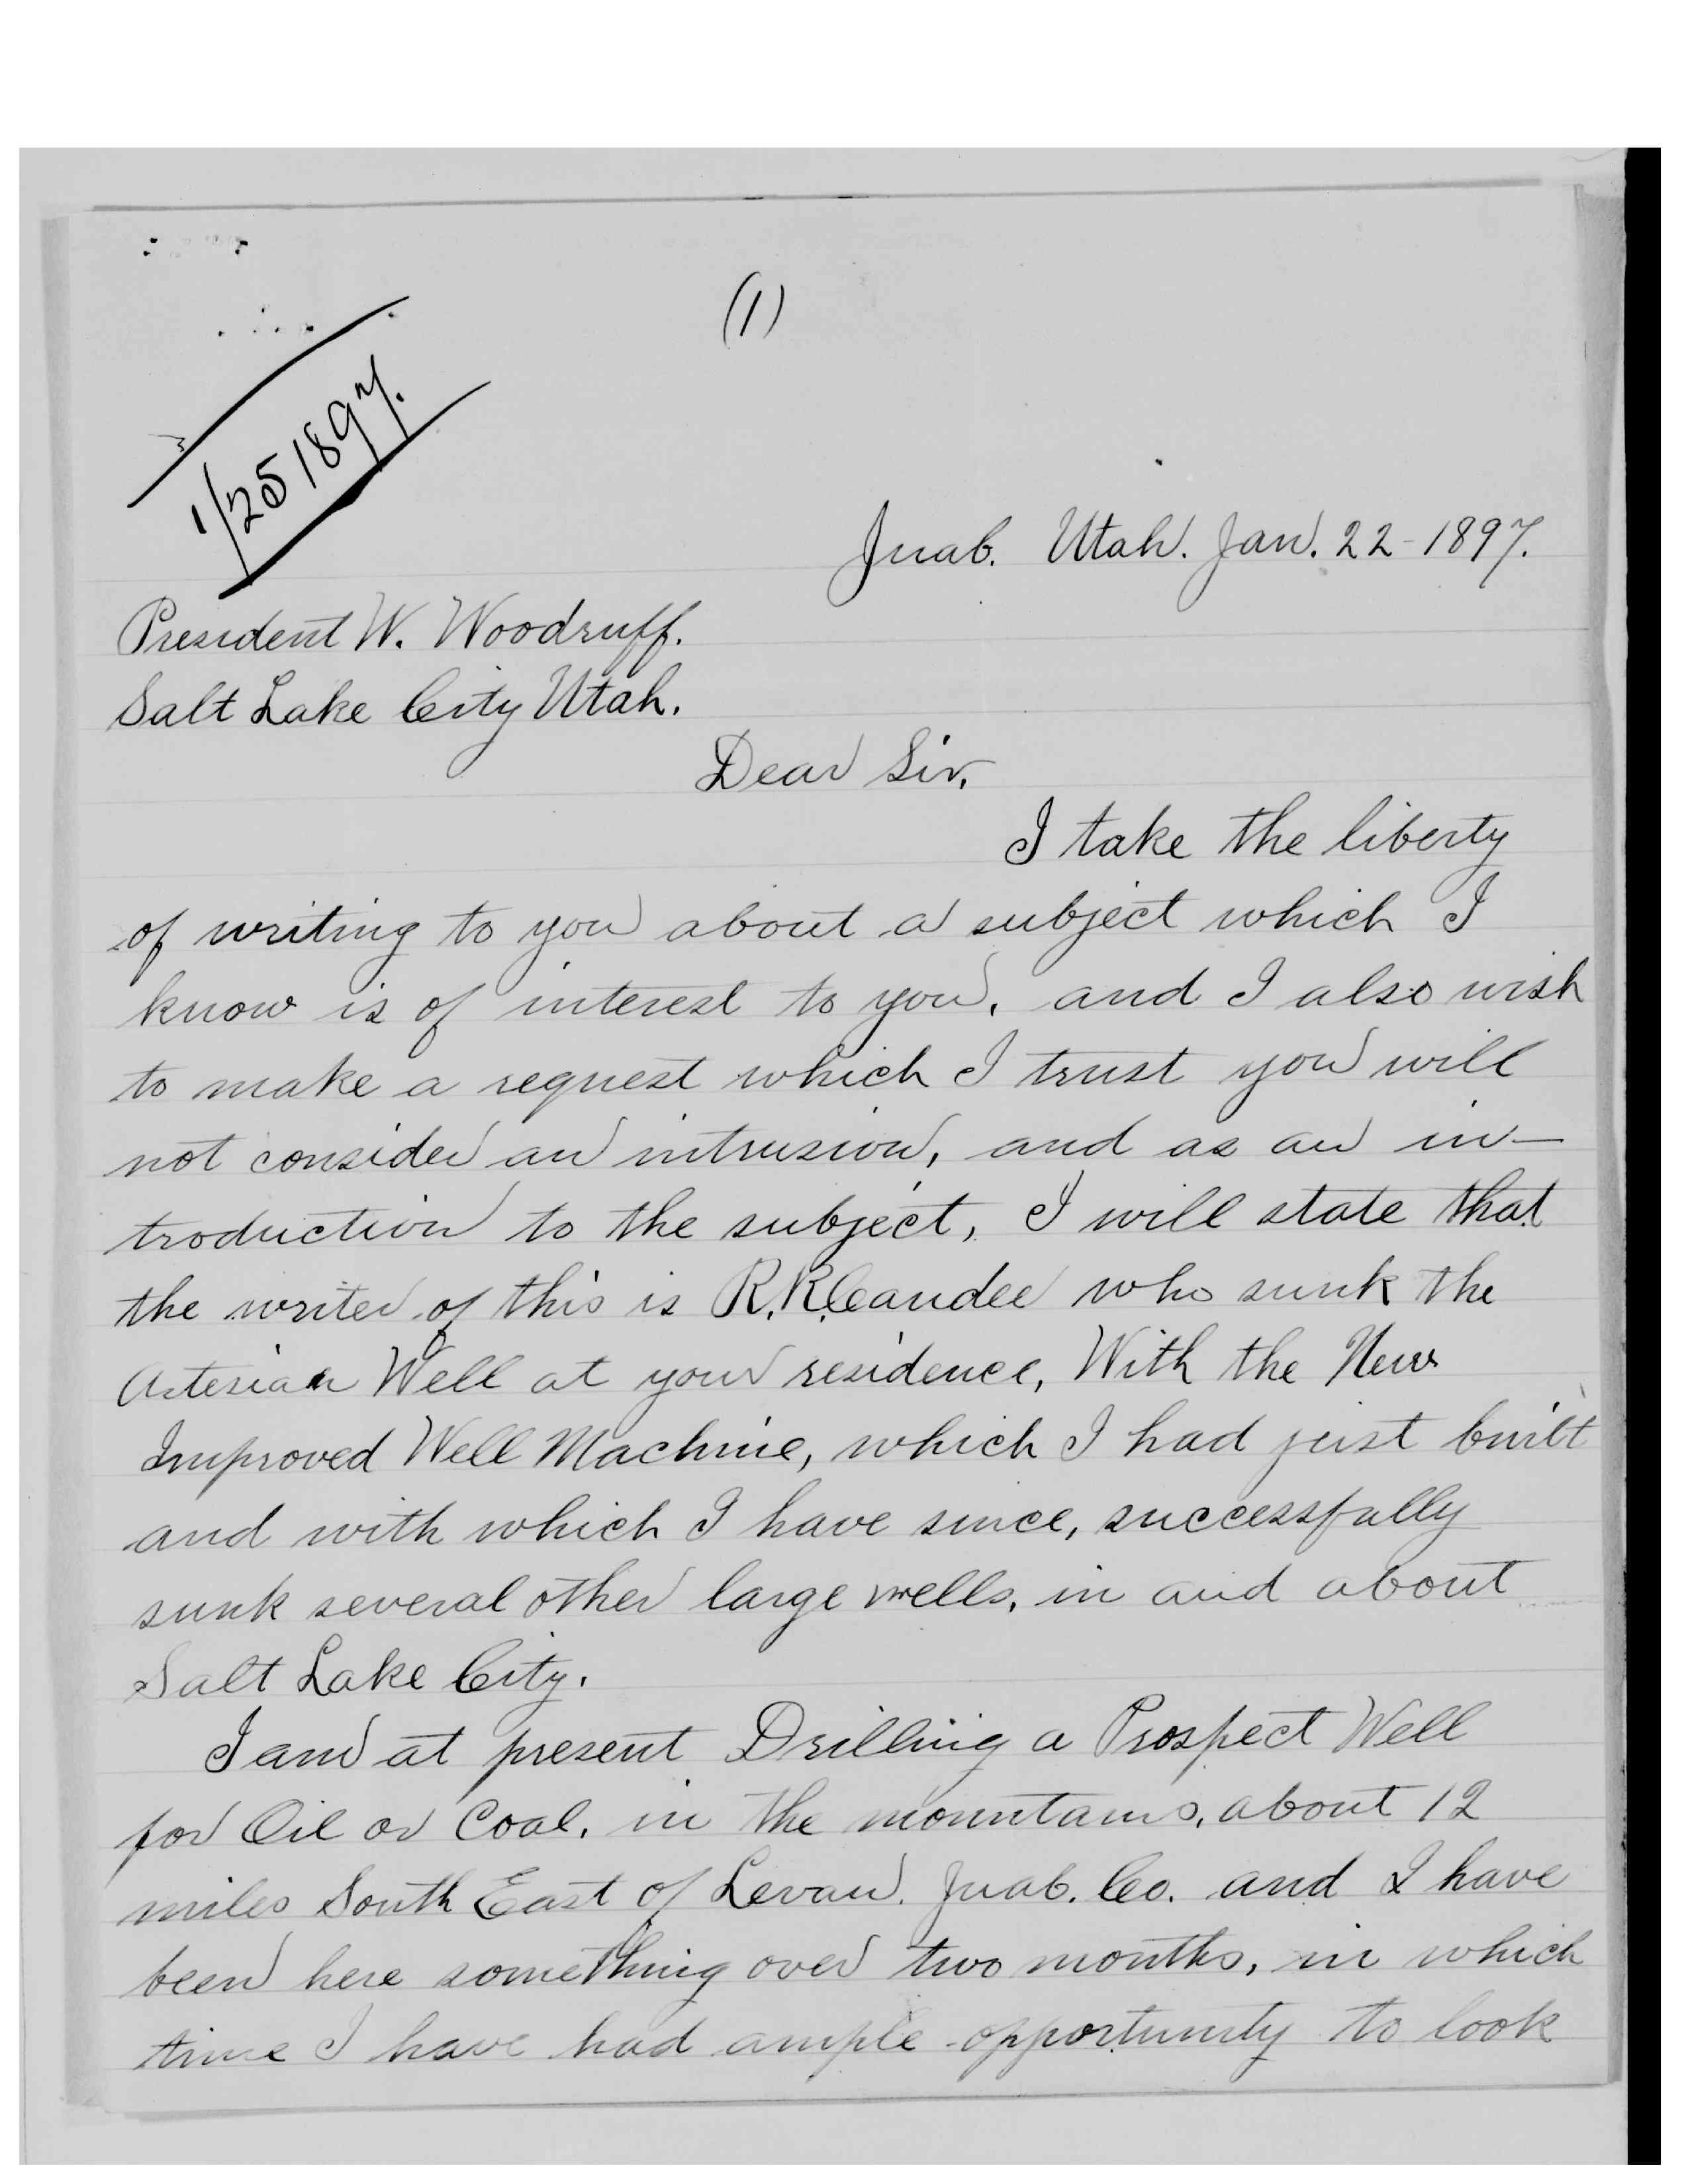 (1)
1/25 1897.
Juab. Utah. Jan. 22-1897.
President W. Woodruff.
Salt Lake City Utah.
Dear Sir,
I take the liberty
of writing to you about a subject which I
know is of interest to you, and I also wish
to make a request which I trust you will
not consider an intrusion, and as an in-
troduction to the subject, I will state that
the writer of this is R.R. Candee who sunk the
Artesian Well at your residence, With the New
Improved Well Machine, which I had just built
and with which I have since, successfully
sunk several other large wells, in and about
Salt Lake City.
I am at present Drilling a Prospect Well
for Oil or Coal, in the mountains, about 12
miles South East of Levan. Juab. Co. and I have
been here something over two months, in which
time I have had ample opportunity to look